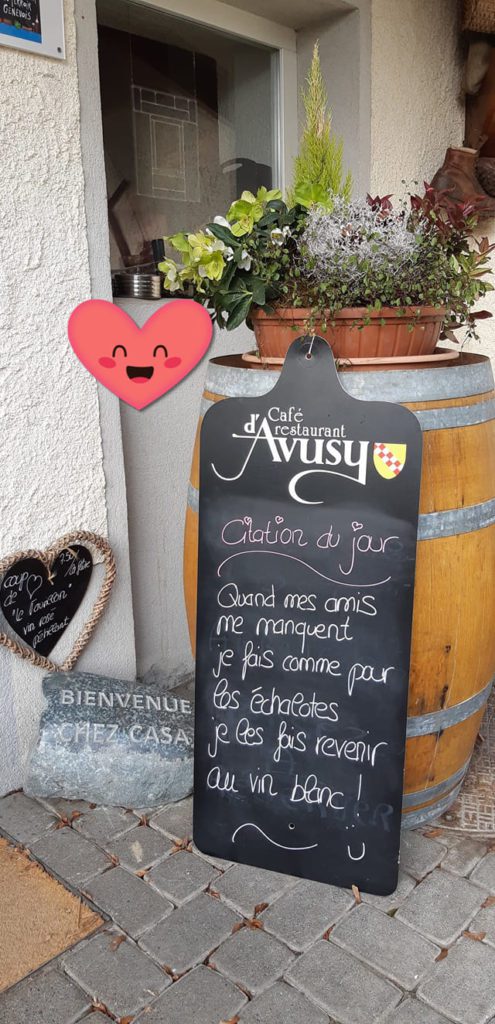 TERROIR
GENEVOIS
Café
restaurant
d'Avusy
Citation du jour
Quand mes amis
me manquent
je fais comme pour
les échalotes
je les fais revenir
au vin blanc !
coup
de
vin rosé
pétillant
BIENVENUE
CHEZ CASA